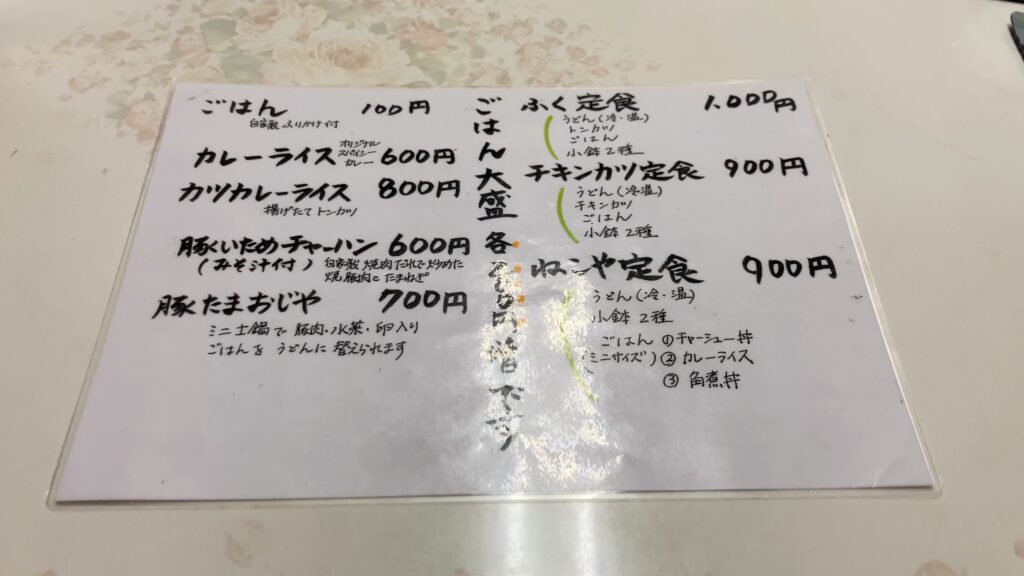 ごはん 100円
自家製ふりかけ付
カレーライス オリジナルスパイシーカレー 600円
カツカレーライス 800円
揚げたてトンカツ
豚いためチャーハン 600円
(みそ汁付) 自家製焼肉だれで炒めた
焼豚肉とたまねぎ
豚たまおじや 700円
ミニ土鍋で豚肉・水菜・卵入り
ごはんをうどんに替えられます
ごはん大盛各 円増です
ふく定食 1,000円
うどん(冷・温)
トンカツ
ごはん
小鉢2種
チキンカツ定食 900円
うどん(冷・温)
チキンカツ
ごはん
小鉢2種
ねこや定食 900円
うどん(冷・温)
小鉢2種
ごはん のチャーシュー丼
(ミニサイズ) ②カレーライス
③角煮丼